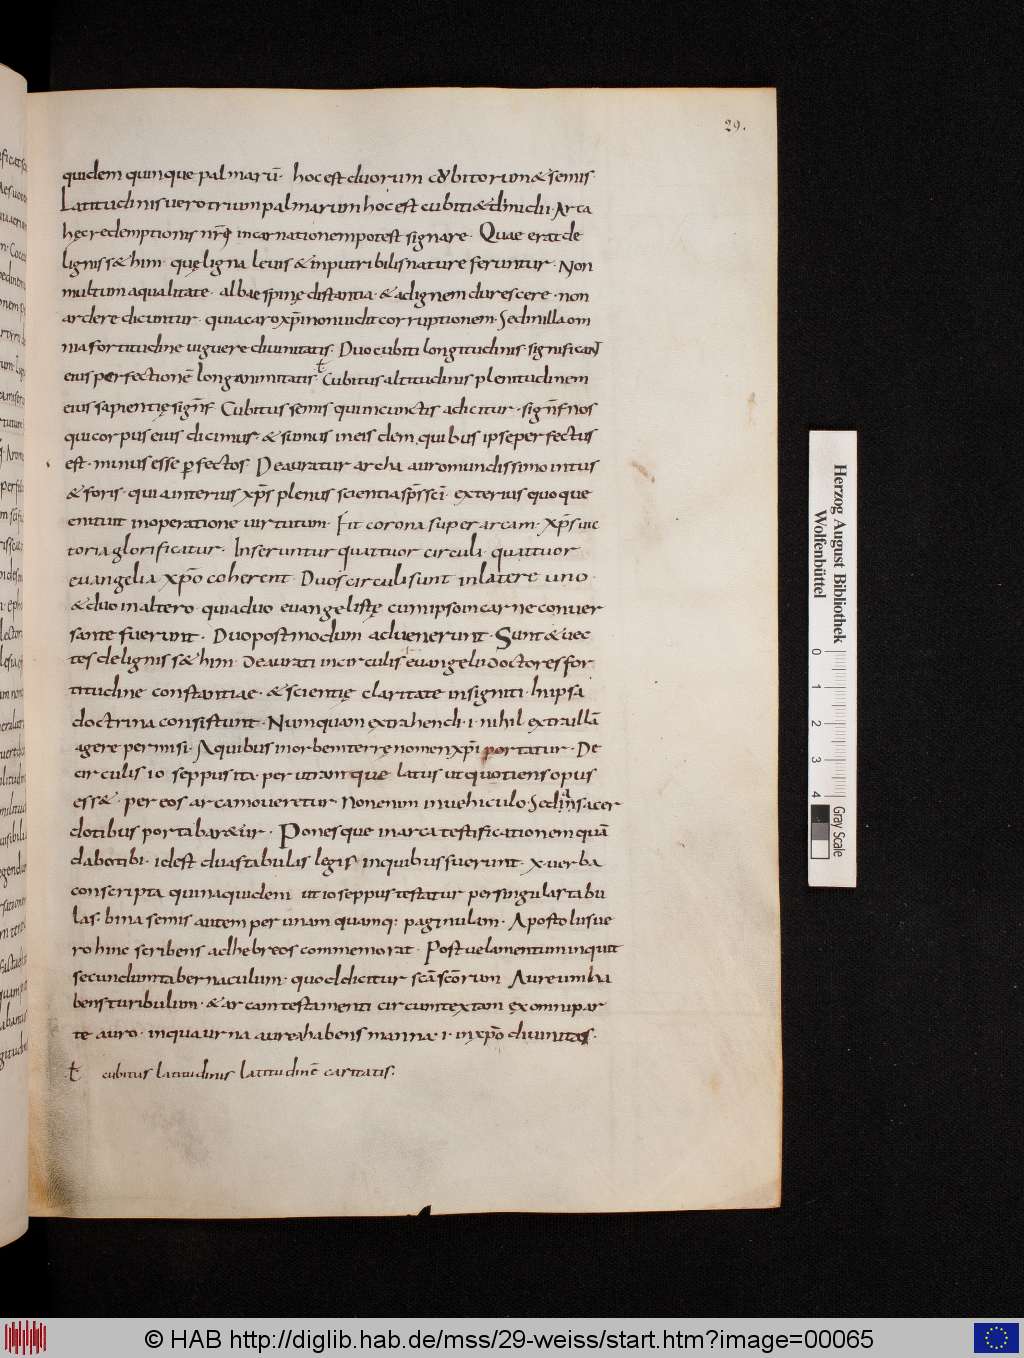 29.
quidem quinque palmarū· hoc est duorum cubitorum & semis·
Latitudinis uero trium palmarum hoc est cubiti & dimidii· Arca
hęc redemptionis nr̄ę incarnationem potest signare· Quae erat de
lignis s&him· quę ligna leuis & inputribilis nature feruntur· Non
multum a qualitate· albae spinę distantia· & ad ignem durescere· non
ardere dicuntur· quia caro xp̄i non uidit corruptionem· Sed in illa om
nia fortitudine uiguere diuinitatis· Duo cubiti longitudinis significant
eius perfectionē longanimitatis· Cubitus altitudinis plenitudinem
eius sapientię signf̄ Cubitus semis qui in cunctis adicitur· signf̄ nos
qui corpus eius dicimur & sumus in eisdem quibus ipse perfectus
est· minus esse ꝑfectos Deauratur archa auro mundissimo intus
& foris· quia interius xp̄s plenus scientia sp̄s sc̄i· exterius quoque
enituit in operatione uirtutum· Fit corona super arcam· xp̄s uic
toria glorificatur· Inseruntur quattuor circula· quattuor
euangelia xp̄o coherent· Duo circuli sunt in latere uno·
& duo in altero· quia duo euangelistę cum ipso in carne conuer
sante fuerunt· Duo postmodum aduenerunt· Sunt & uec
tes de lignis s&him· Deaurati in circulis euangelii doctores for
titudine constantiae· & scientię claritate insigniti· In ipsa
doctrina consistunt· Numquam extrahendi· i· nihil extra illā
agere permisi· A quibus in orbem terrę nomen xp̄i portatur· De
circulis ioseppus ita· per utramque latus ut quotiens opus
ess&· per eos arca moueretur· Non enim in uehiculo· Sed in sacer
dotibus portabar&ur· Pones que in arca testificationem quā
dabo tibi· id est duas tabulas legis· in quibus fuerunt· x· uerba
conscripta quina quidem ut ioseppus testatur per singulas tabu
las· bina semis autem per unam quamq: paginulam· Apostolus ue
ro hinc scribens ad hebreos commemorat· Post uelamentum inquit
secundum tabernaculum· quod dicitur sc̄a sc̄orum Aureum ha
bens turibulum· & arcam testamenti circumtextam ex omni par
te auro· in qua urna aurea habens manna· i· in xp̄o diuinitas·
cubitus latitudinis latitudinē caritatis·
Herzog August Bibliothek
Wolfenbüttel
0 1 2 3 4
Gray Scale
© HAB http://diglib.hab.de/mss/29-weiss/start.htm?image=00065